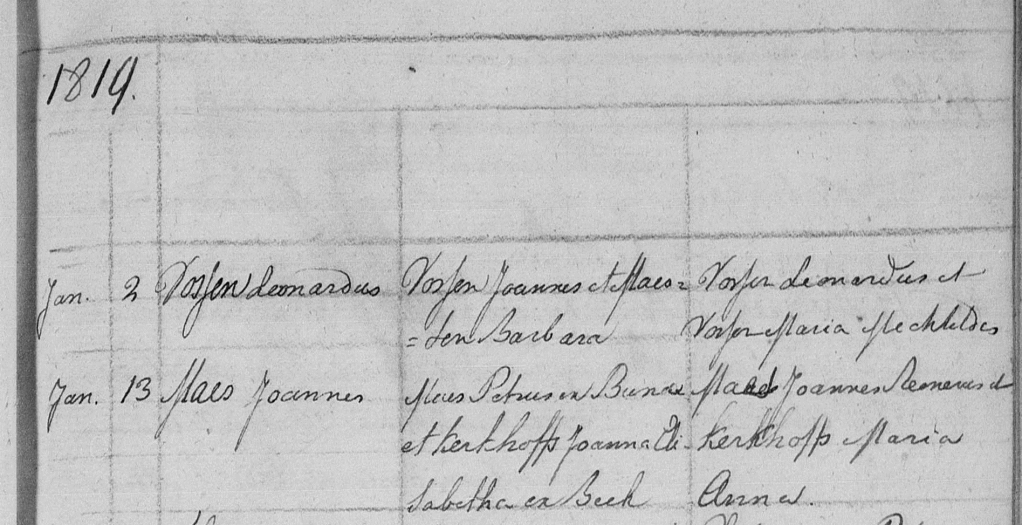 1819.
Jan. 2 Vossen Leonardus Vossen Joannes et Maes= Vossen Leonardus et
=sen Barbara Vossen Maria Mechtildis
Jan. 13 Maes Joannes Maes Petrus ex Bunde Maes Joannes et
et Kerkhoffs Joanna Eli- Kerkhoffs Maria
sabetha ex Beek Anna.